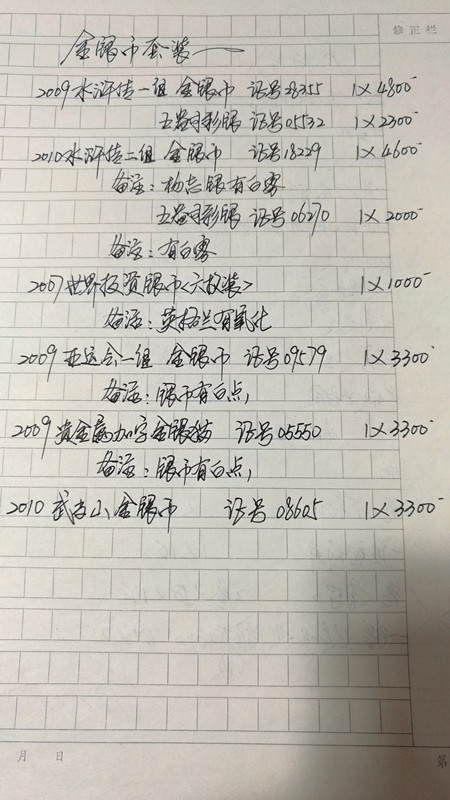 修正栏
金银币套装一
2009水浒传一组 金银币 证号28355 1×4800-
五盎司彩银 证号05532 1×2300-
2010水浒传二组 金银币 证号18229 1×4600-
备注：杨志银有白雾
五盎司彩银 证号06270 1×2000-
备注：有白雾
2007世界投资银币<六枚装> 1×1000-
备注：英格兰有氧化
2009亚运会一组 金银币 证号09579 1×3300-
备注：银币有白点，
2009贵金属加字金银猫 证号05550 1×3300-
备注：银币有白点，
2010武夷山金银币 证号08605 1×3300-
月 日 第